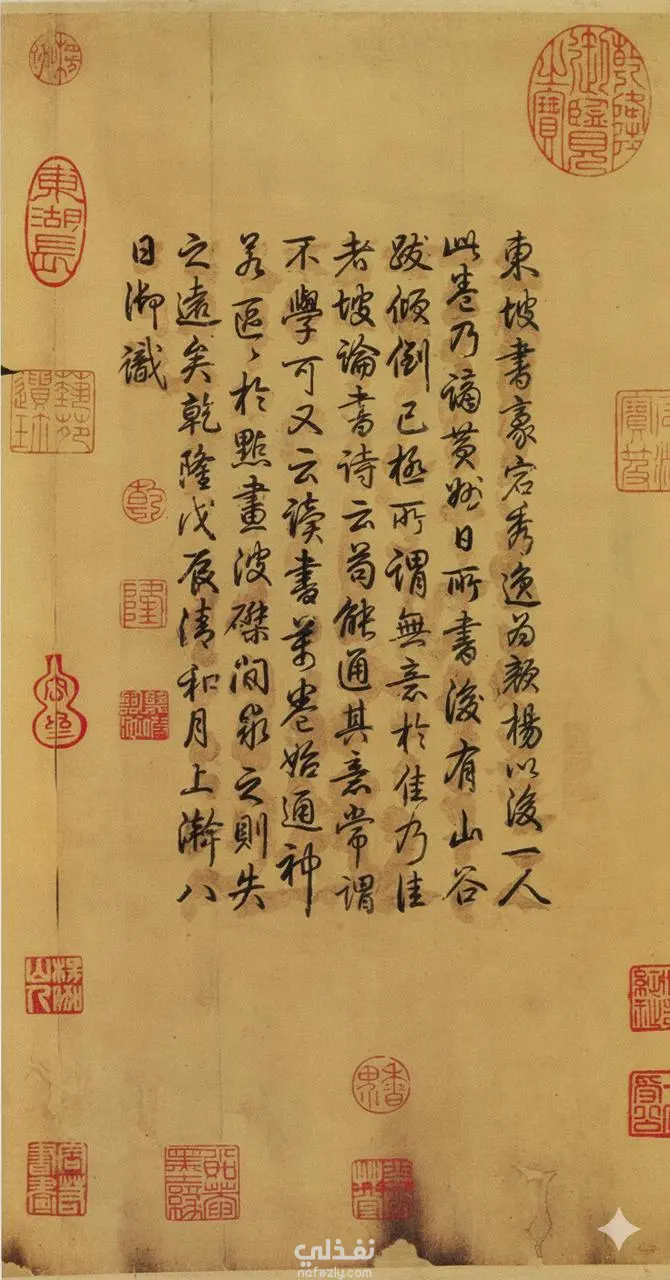 乾隆御覽之寶
東坡書豪宕秀逸為顏楊以後一人
此卷乃謫黃州日所書後有山谷
跋傾倒已極所謂無意於佳乃佳
者坡論書詩云苟能通其意常謂
不學可又云讀書萬卷始通神
若區〻於點畫波磔間求之則失
之遠矣乾隆戊辰清和月上澣八
日御識
乾
隆
東湖長
藝苑遺珍
楞伽山人
نفذلي
nafezly.com